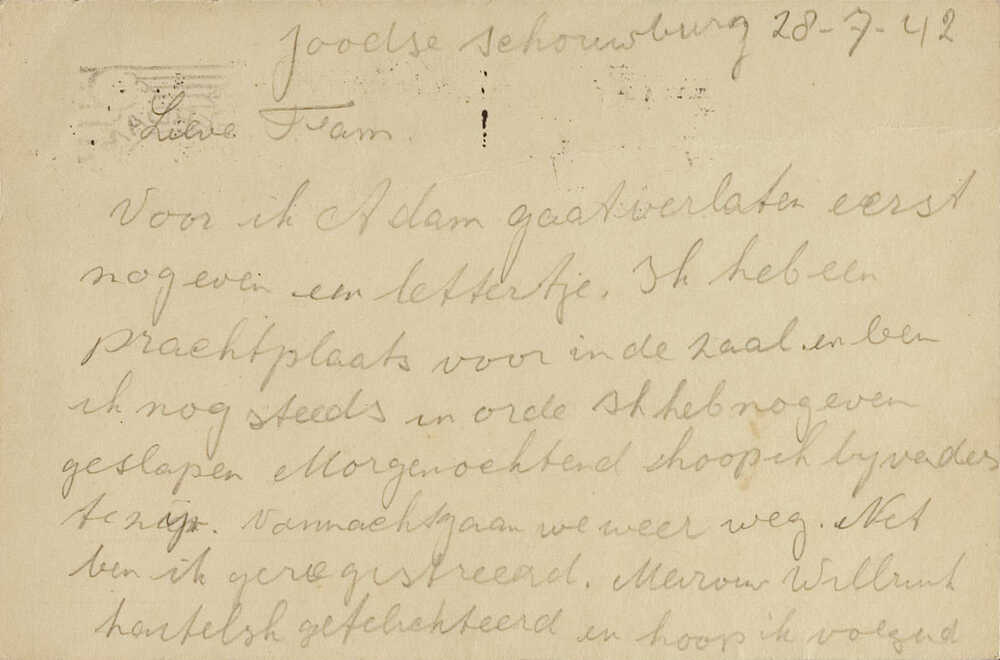 Joodse schouwburg 28-7-42
Lieve Fam.
Voor ik A dam gaat verlaten eerst
nog even een lettertje. Ik heb een
prachtplaats voor in de zaal en ben
ik nog steeds in orde Ik heb nog even
geslapen Morgenochtend hoop ik by vaders
te zijn. Vannacht gaan we weer weg. Net
ben ik geregistreerd.
hartelijk gefeliciteerd en hoop ik volgend